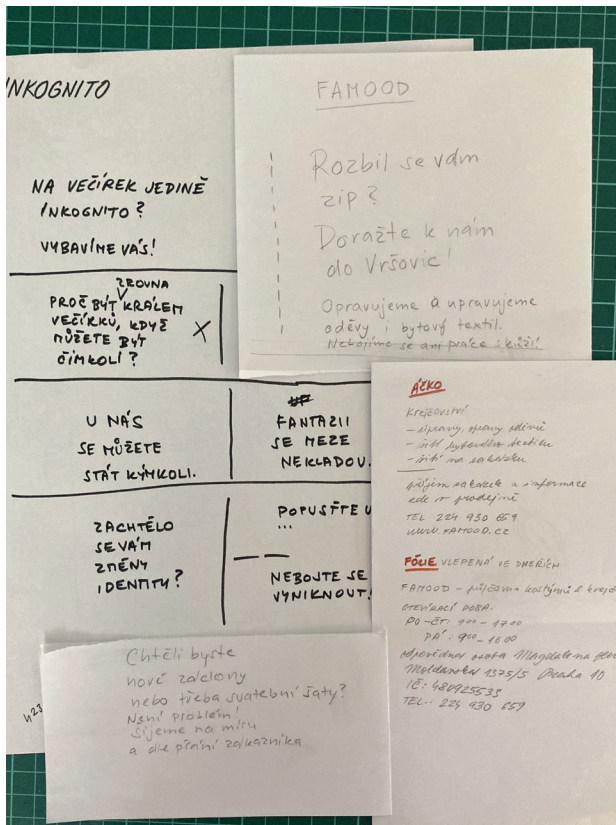 INKOGNITO
NA VEČÍREK JEDINĚ
INKOGNITO?
VYBAVÍME VÁS!
ZROVNA
PROČ BÝT KRÁLEM
VEČÍRKŮ, KDYŽ
MŮŽETE BÝT
ČÍMKOLI?
X
U NÁS
SE MŮŽETE
STÁT KÝMKOLI.
FANTAZII
SE MEZE
NEKLADOU.
ZACHTĚLO
SE VÁM
ZMĚNY
IDENTITY?
POPUSŤTE U
...
NEBOJTE SE
VYNIKNOUT!
FAMOOD
Rozbil se vám
zip?
Doražte k nám
do Vršovic!
Opravujeme a upravujeme
oděvy i bytový textil.
Nebojíme se ani práce s kůží!
ÁČKO
KREJČOVSTVÍ
- úpravy, opravy oděvů
- šití bytového textilu
- šití na zakázku
příjem zakázek a informace
zde v prodejně
TEL 224 930 659
WWW.FAMOOD.CZ
FÓLIE VLEPENÁ VE DVEŘÍCH
FAMOOD - půjčovna kostýmů & krejč
OTEVÍRACÍ DOBA:
PO-ČT: 9 00 - 17 00
PÁ: 9 00 - 16 00
odpovědná osoba Magdalena
Moldavská 1375/5 Praha 10
IČ: 480925535
TEL.: 224 930 659
Chtěli byste
nové záclony
nebo třeba svatební šaty?
Není problém!
Šijeme na míru
a dle přání zákazníka